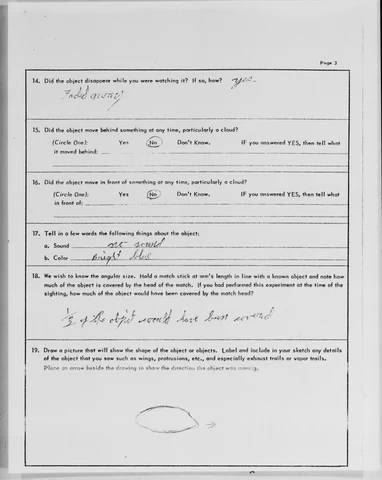 Page 3
14. Did the object disappear while you were watching it? If so, how? yes.
Faded away
15. Did the object move behind something at any time, particularly a cloud?
(Circle One): Yes No Don't Know. IF you answered YES, then tell what
it moved behind:
16. Did the object move in front of something at any time, particularly a cloud?
(Circle One): Yes No Don't Know. IF you answered YES, then tell what
in front of:
17. Tell in a few words the following things about the object:
a. Sound no sound
b. Color Bright blue
18. We wish to know the angular size. Hold a match stick at arm's length in line with a known object and note how
much of the object is covered by the head of the match. If you had performed this experiment at the time of the
sighting, how much of the object would have been covered by the match head?
1/2 of the object would have been covered
19. Draw a picture that will show the shape of the object or objects. Label and include in your sketch any details
of the object that you saw such as wings, protrusions, etc., and especially exhaust trails or vapor trails.
Place an arrow beside the drawing to show the direction the object was moving.